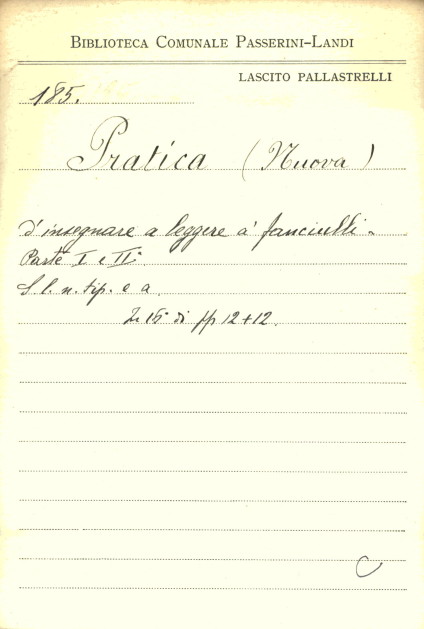 BIBLIOTECA COMUNALE PASSERINI-LANDI
LASCITO PALLASTRELLI
185.
Pratica (Nuova)
d'insegnare a leggere a' fanciulli.
Parte I e IIª
S. l. n. tip. e a.
In 16° di pp 12+12.
C